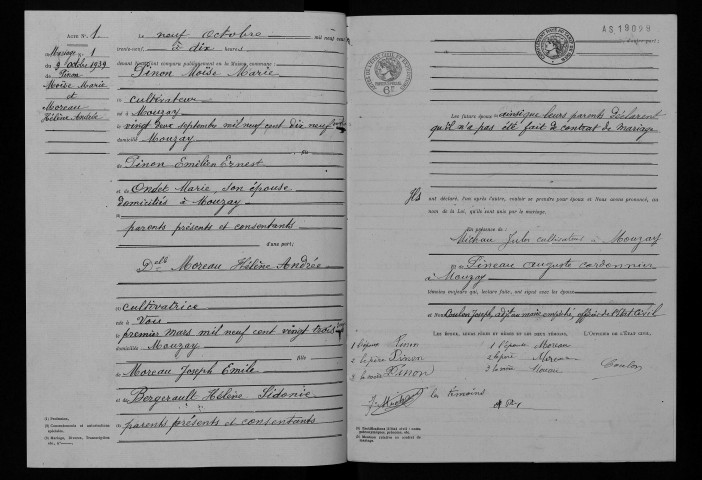 ACTE N° 1
Mariage N° 1
du 9 octobre 1939
Pinon
Moïse Marie
et
Moreau
Hélène Andrée
Le neuf octobre mil neuf cent
trente-neuf, à dix heures
devant Nous ont comparu publiquement en la Maison commune :
Pinon Moïse Marie
cultivateur
né à Mouzay
le vingt deux septembre mil neuf cent dix neuf
domicilié Mouzay
fils
de Pinon Emilien Ernest
et de Ondet Marie, son épouse
domiciliés à Mouzay
parents présents et consentants
d'une part;
Delle Moreau Hélène Andrée
cultivatrice
née à Vou
le premier mars mil neuf cent vingt trois
domiciliée Mouzay
fille
de Moreau Joseph Emile
et de Bergerault Hélène Sidonie
parents présents et consentants
(1) Profession.
(2) Consentements et autorisations
spéciales.
(3) Mariage, Divorce, Transcription
etc.
A819029
d'autre part;
6F
Les futurs époux ainsi que leurs parents déclarent
qu'il n'a pas été fait de contrat de mariage
Ils ont déclaré, l'un après l'autre, vouloir se prendre pour époux et Nous avons prononcé, au
nom de la Loi, qu'ils sont unis par le mariage.
En présence de
Michau Jules cultivateur à Mouzay
Pineau Auguste cordonnier
à Mouzay
témoins majeurs qui, lecture faite, ont signé avec les époux
et Nous Coulon Joseph, adjoint au maire empêché, officier de l'Etat Civil
LES ÉPOUX, LEURS PÈRES ET MÈRES ET LES DEUX TÉMOINS, L'OFFICIER DE L'ÉTAT CIVIL,
1 l'époux Pinon 1 l'épouse Moreau
2 le père Pinon 2 le père Moreau
3 la mère Pinon 3 la mère Moreau
Coulon
les témoins